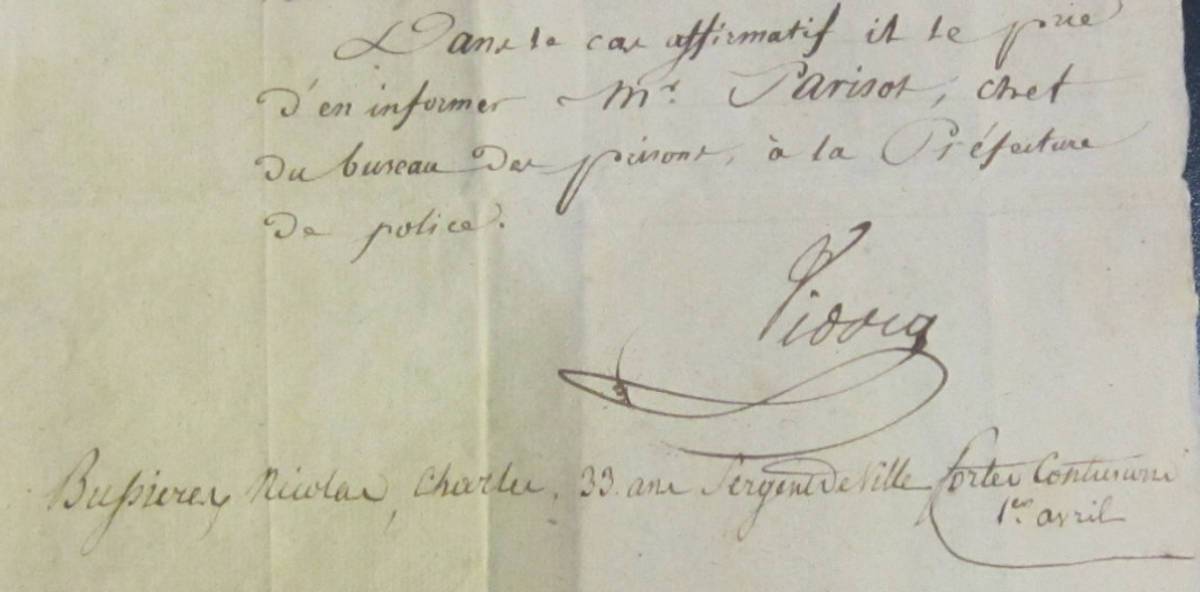 Dans le cas affirmatif il le prie
d'en informer Mr. Parisot, chef
du bureau des prisons, à la Préfecture
de police.
Vidocq
Bussieres, Nicolas, Charles, 33 ans Sergent de Ville fortes Contusions
1er avril